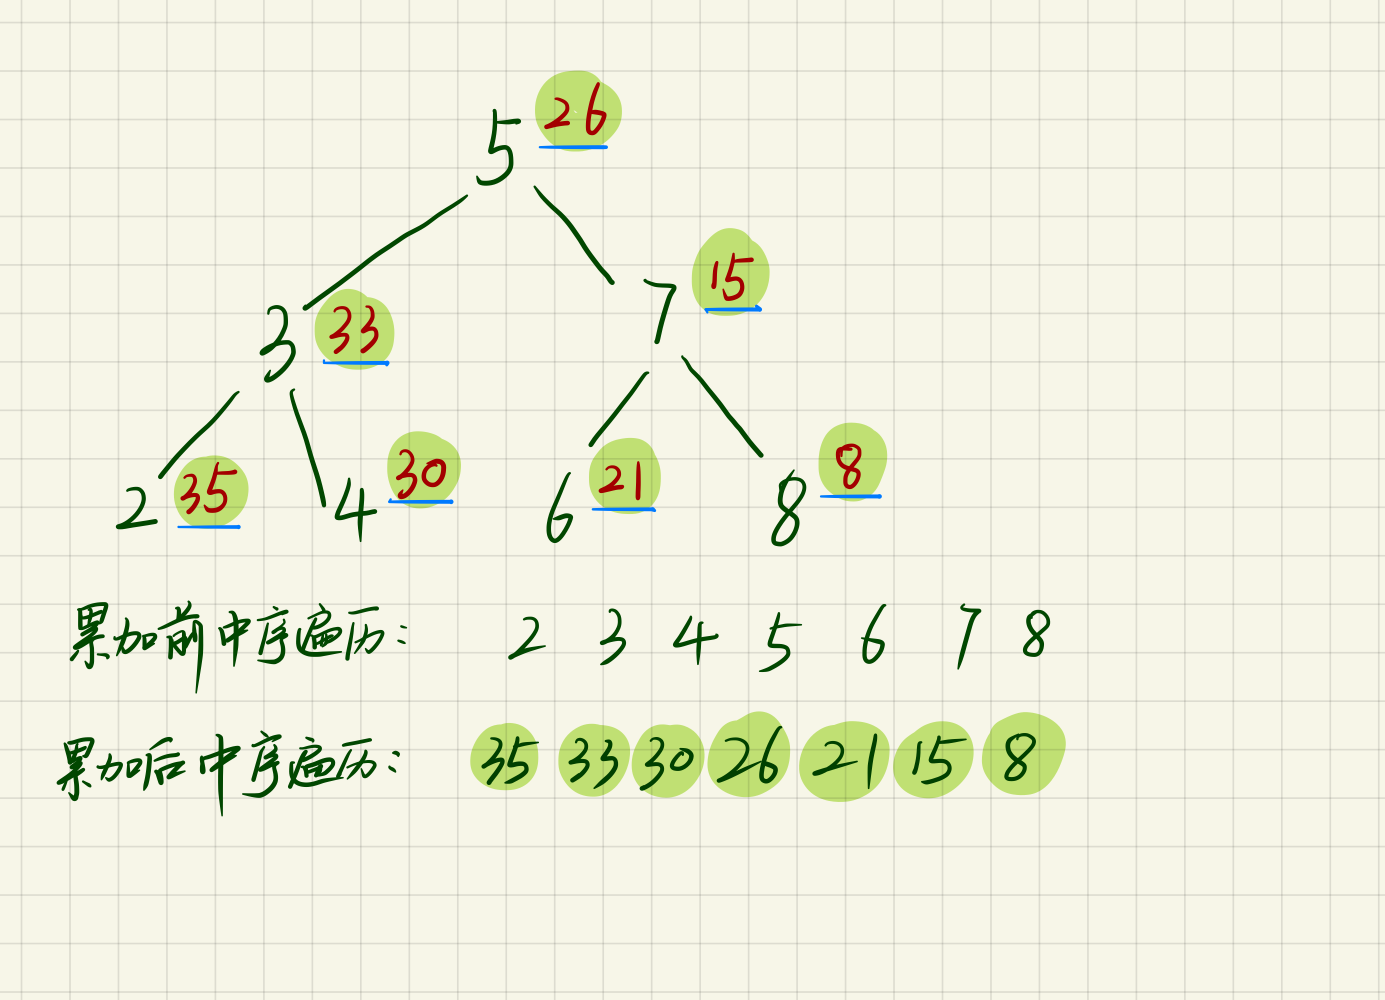 5 26
3 33
7 15
2 35
4 30
6 21
8 8
累加前中序遍历: 2 3 4 5 6 7 8
累加后中序遍历: 35 33 30 26 21 15 8